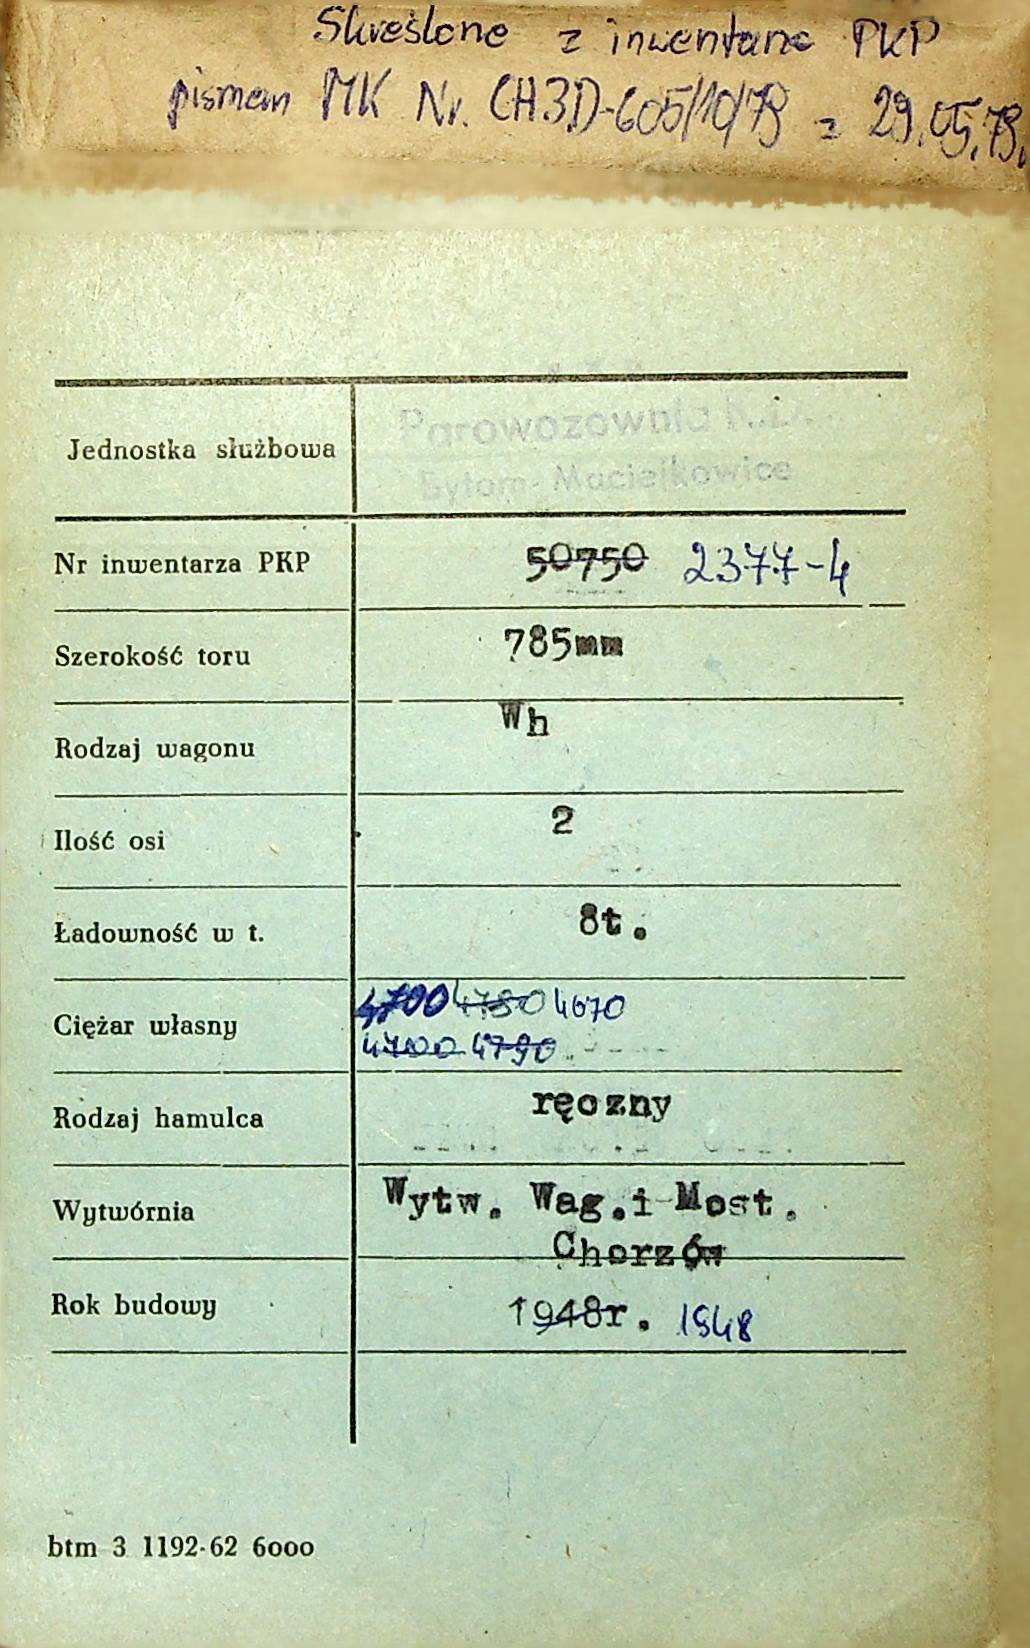 Skreślone z inwentarza PKP
pismem MK Nr. CH3D-605/10/79 z 29.05.79.
Parowozownia
Jednostka służbowa
Bytom-Maciejkowice
Nr inwentarza PKP 50750 2377-4
Szerokość toru 785mm
Rodzaj wagonu Wh
Ilość osi 2
Ładowność w t. 8t.
4700 4780 4670
Ciężar własny
4700 4790
Rodzaj hamulca ręczny
Wytwórnia Wytw. Wag.i Most.
Chorzów
Rok budowy 1948r. 1948
btm 3 1192-62 6000